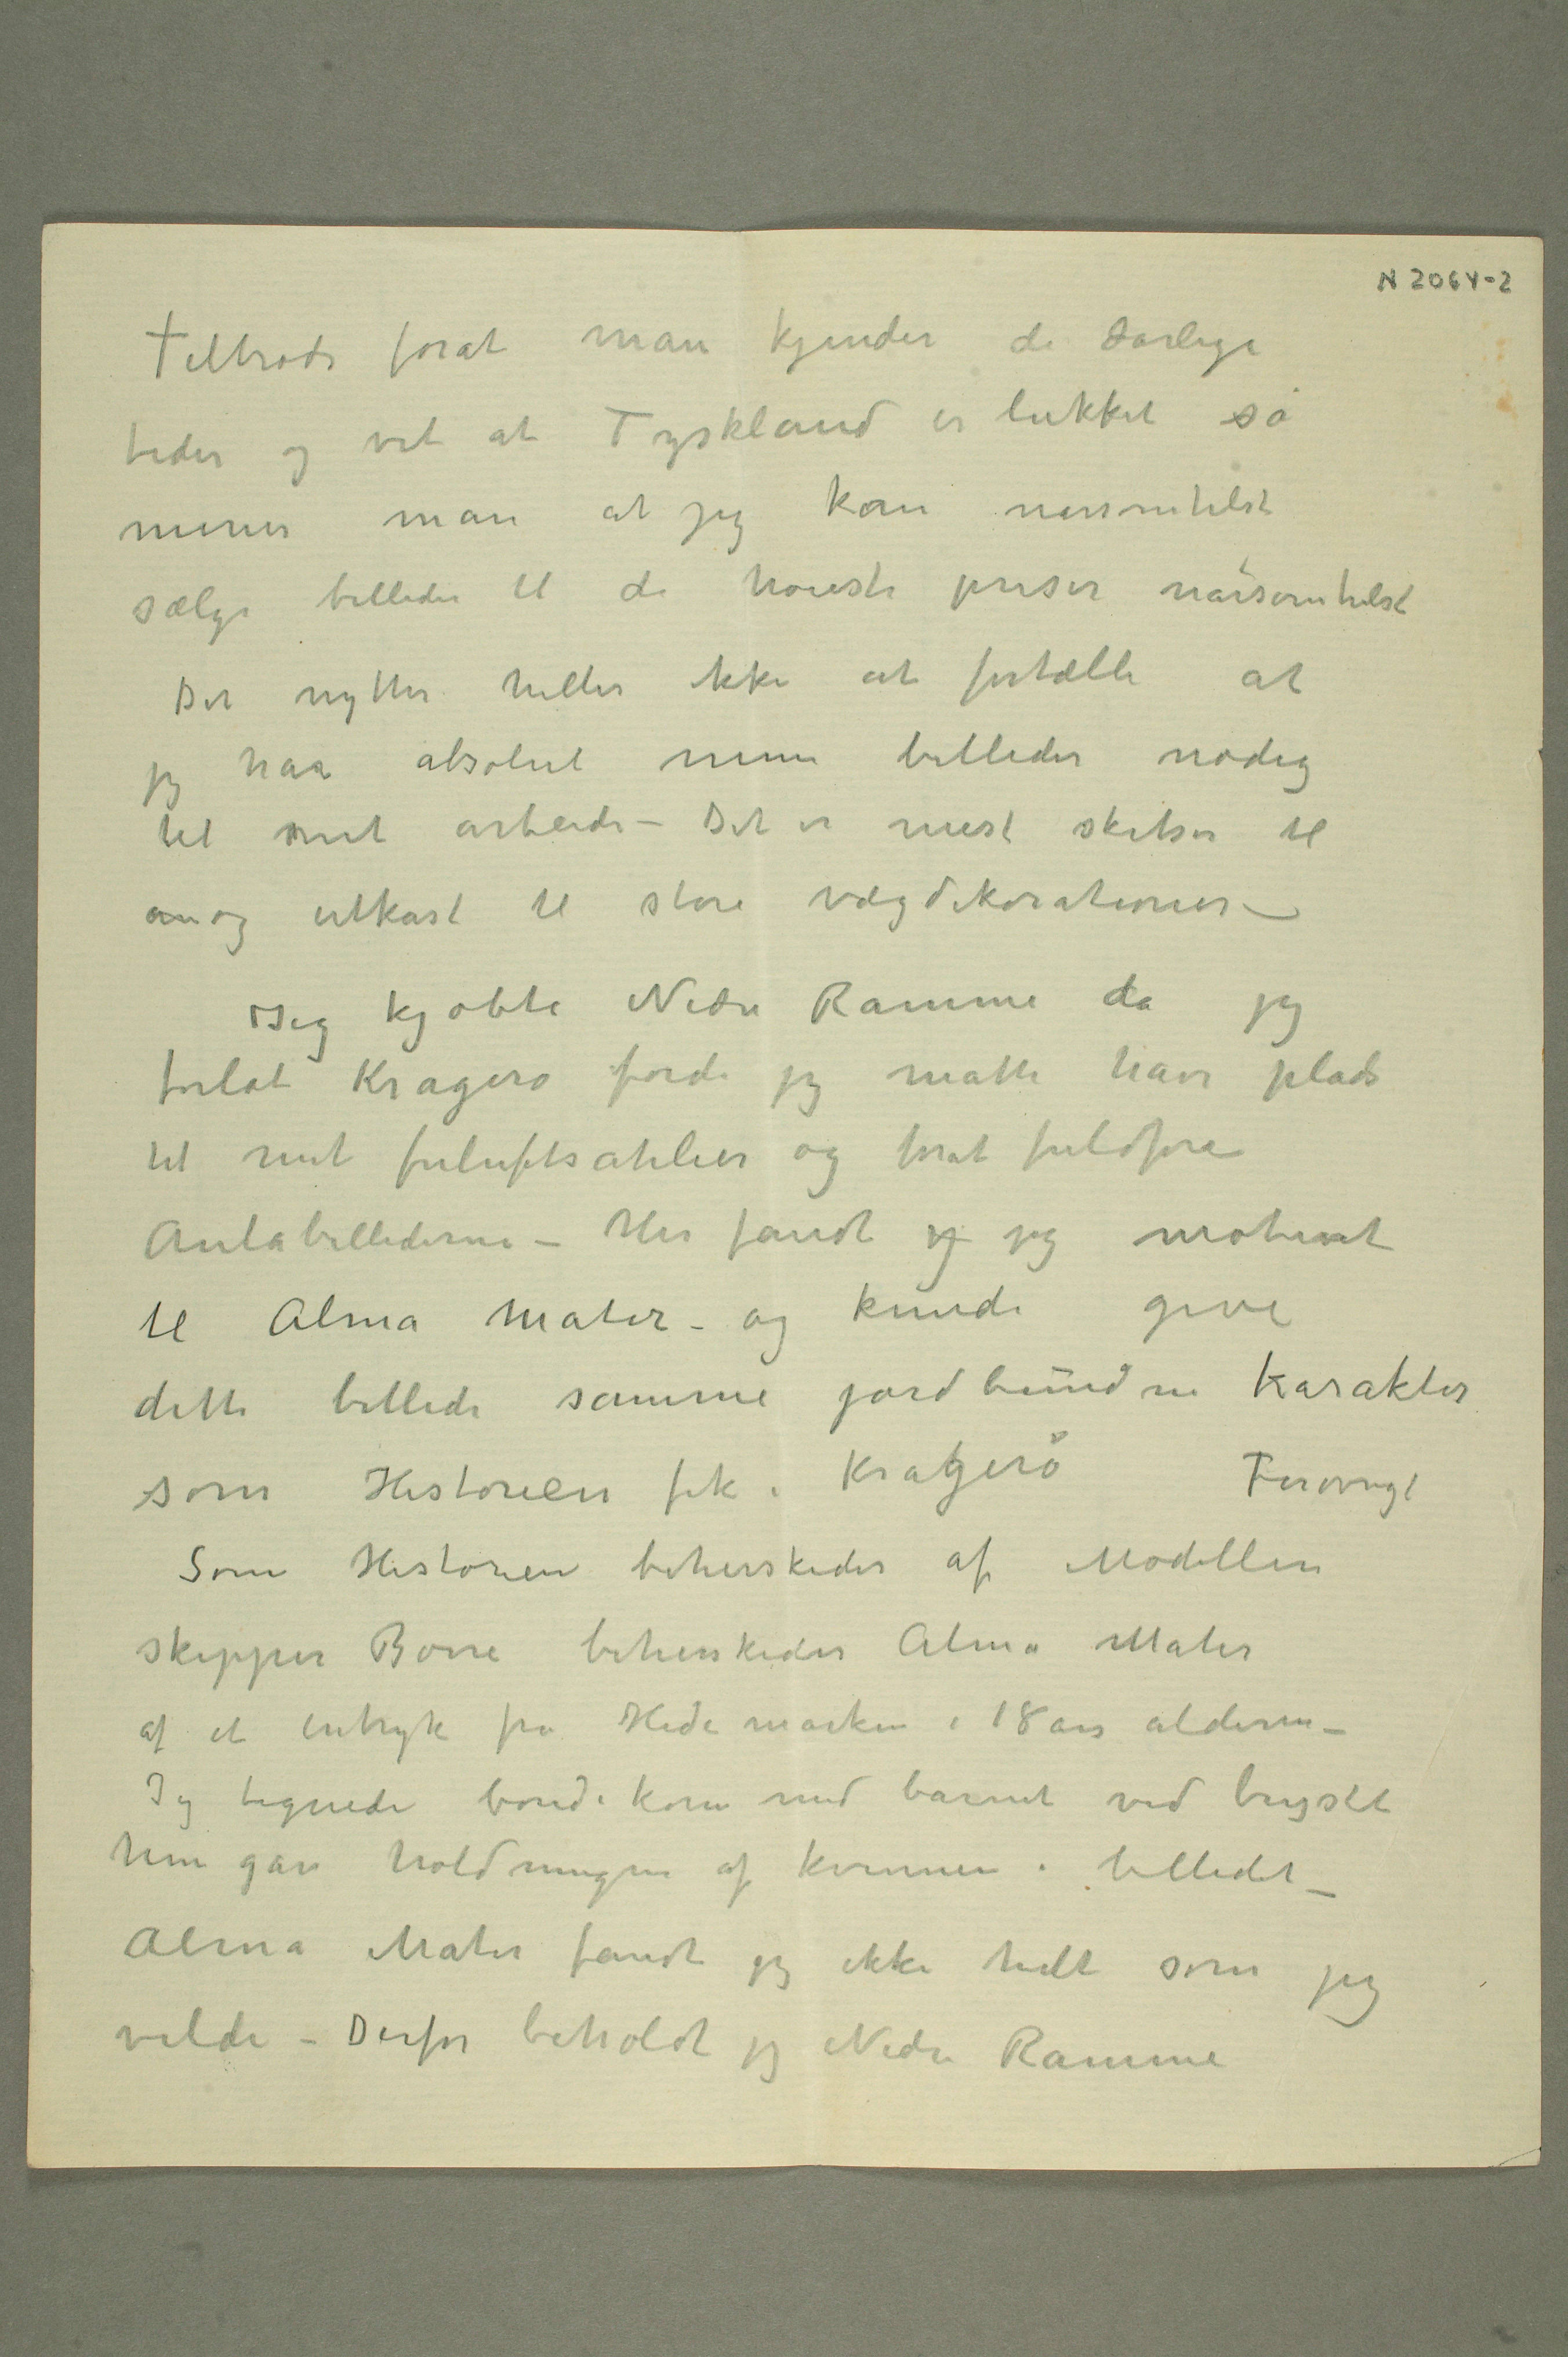 N 2064-2
Tiltrods forat man kjender de darlige
tider og vet at Tyskland er lukket så
mener man at jeg kan narsomhelst
sælge billeder til de høieste priser nårsomhelst
Det nytter heller ikke at fortælle at
jeg haa absolut mine billeder nødig
til mit arbeide – Det er mest skitser til
an og utkast til store vægdekorationer –
Jeg kjøbte Nedre Ramme da jeg
forlot Kragerø fordi jeg matte have plads
til mit friluftsatelier og forat fuldføre
Aulabillederne – Her fandt jeg jeg motivet
til Alma Mater – og kunde give
dette billede samme jordbundne karakter
som Historien fik i Kragerø Forøvrigt
Som Historien beherskedes af Modellen
skipper Børre beherskedes Alma Mater
af et indtryk fra Hedemarken i 18 ars alderen –
Jeg tegnede bondekone med barnet ved brystet
hun gav holdningen af kvinnen i billedet –
Alma Mater fandt jeg ikke helt som jeg
vilde – Derfor beholdt jeg Nedre Ramme